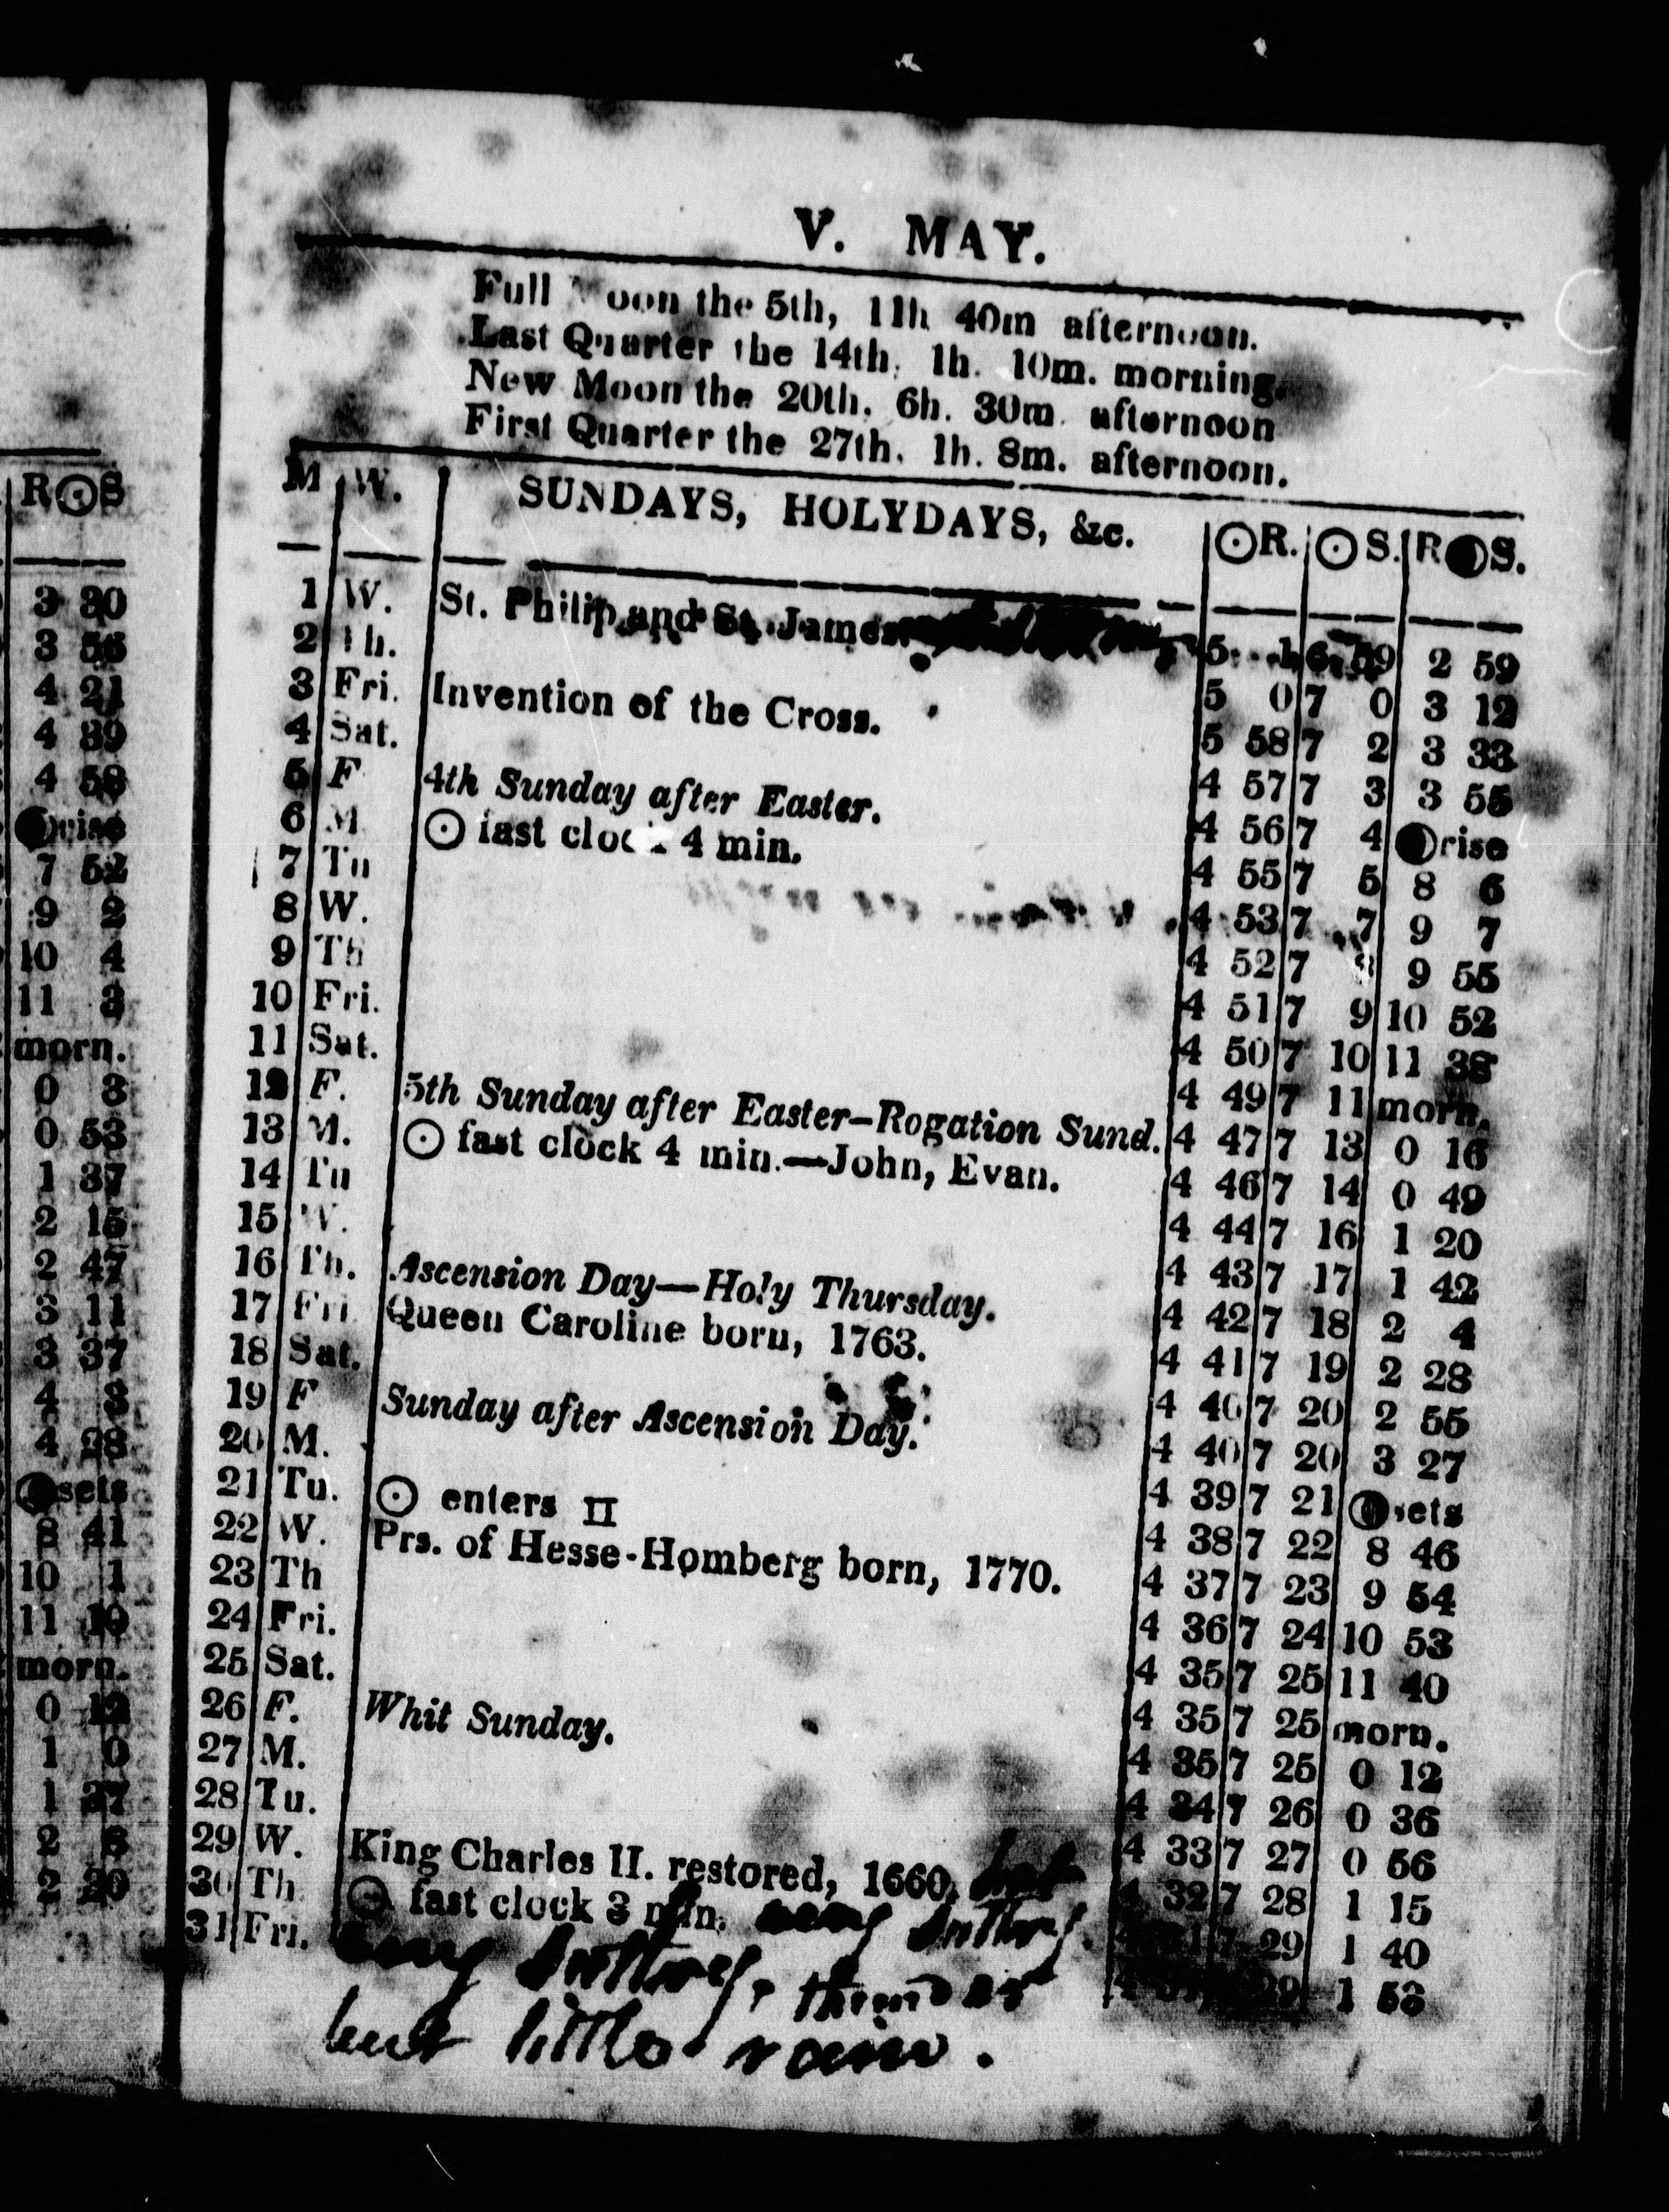 R☉S
3 30
3 56
4 21
4 39
4 58
rise
7 52
9 2
10 4
11 3
morn.
0 3
0 53
1 37
2 15
2 47
3 11
3 37
4 3
4 28
sets
8 41
10 1
11 10
morn.
0 12
1 0
1 37
2 6
2 20
V. MAY.
Full Moon the 5th, 11h 40m afternoon.
Last Quarter the 14th, 1h. 10m. morning.
New Moon the 20th, 6h. 30m. afternoon
First Quarter the 27th, 1h. 8m. afternoon.
M W. SUNDAYS, HOLYDAYS, &c. ☉R. ☉S. R☽S.
1 W. St. Philip and St. James. 5 1 6 59 2 59
2 Th. 5 0 7 0 3 12
3 Fri. Invention of the Cross. 5 58 7 2 3 33
4 Sat. 4 57 7 3 3 55
5 F 4th Sunday after Easter. 4 56 7 4 ☽rise
6 M ☉ fast clock 4 min. 4 55 7 5 8 6
7 Tu 4 53 7 7 9 7
8 W. 4 52 7 8 9 55
9 Th 4 51 7 9 10 52
10 Fri. 4 50 7 10 11 38
11 Sat. 4 49 7 11 morn.
12 F. 5th Sunday after Easter–Rogation Sund. 4 47 7 13 0 16
13 M. ☉ fast clock 4 min.—John, Evan. 4 46 7 14 0 49
14 Tu 4 44 7 16 1 20
15 W. 4 43 7 17 1 42
16 Th. Ascension Day—Holy Thursday. 4 42 7 18 2 4
17 Fri Queen Caroline born, 1763. 4 41 7 19 2 28
18 Sat. 4 40 7 20 2 55
19 F Sunday after Ascension Day. 4 40 7 20 3 27
20 M. 4 39 7 21 ☽sets
21 Tu. ☉ enters II 4 38 7 22 8 46
22 W. Prs. of Hesse-Homberg born, 1770. 4 37 7 23 9 54
23 Th 4 36 7 24 10 53
24 Fri. 4 35 7 25 11 40
25 Sat. 4 35 7 25 morn.
26 F. Whit Sunday. 4 35 7 25 0 12
27 M. 4 34 7 26 0 36
28 Tu. 4 33 7 27 0 56
29 W. King Charles II. restored, 1660, hot 4 32 7 28 1 15
30 Th ☉ fast clock 3 min. very sultry. 4 31 7 29 1 40
31 Fri. very sultry, thunder 29 1 53
but little rain.